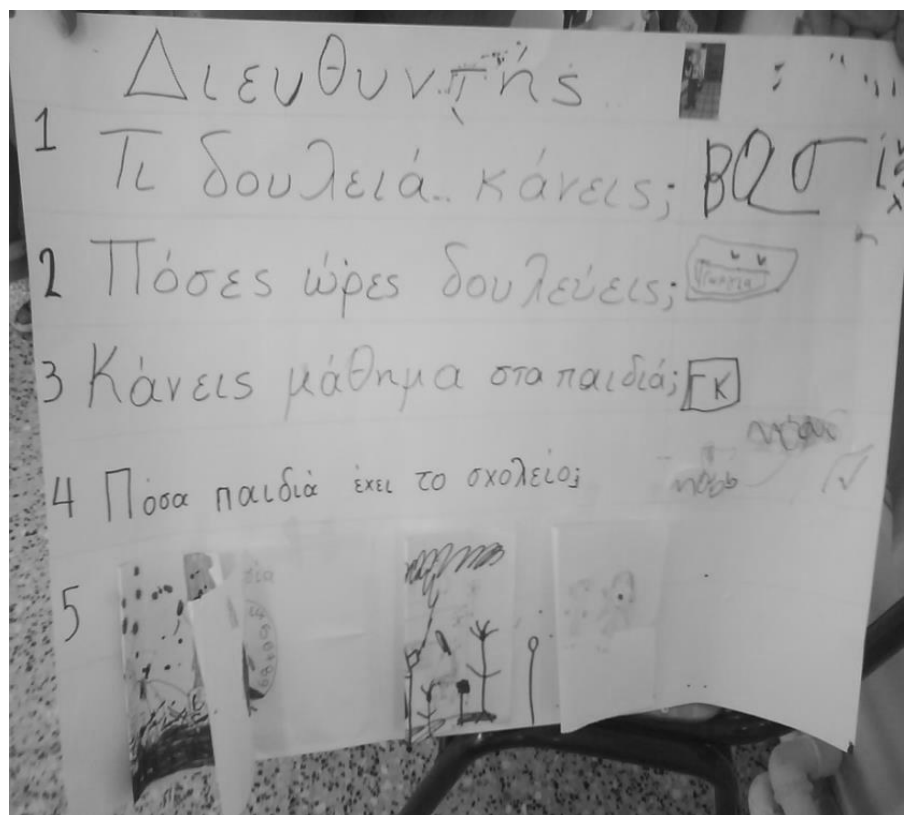 Διευθυντής
1 Τι δουλειά.. κάνεις;
2 Πόσες ώρες δουλεύεις;
3 Κάνεις μάθημα στα παιδιά; ΓΚ
4 Πόσα παιδιά έχει το σχολείο;
5